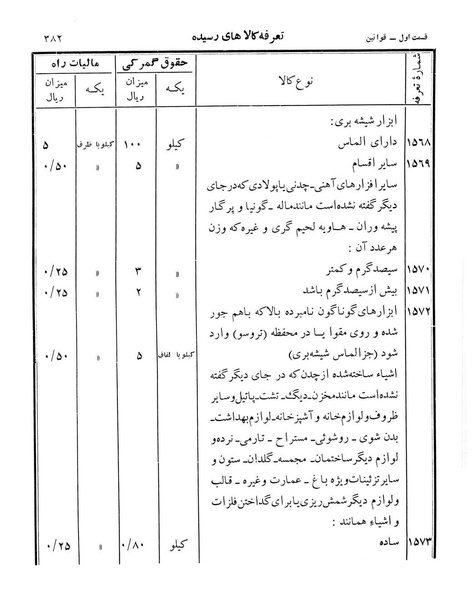 قسمت اول ــ قوانین تعرفه کالاهای رسیده ۳۸۲
شمارهٔ تعرفه نوع کالا حقوق گمرکی مالیات راه
یکه میزان ریال یکه میزان ریال
ابزار شیشه بری:
۱۵۶۸ دارای الماس کیلو ۱۰۰ کیلو با ظرف ۵
۱۵۶۹ سایر اقسام » ۵ » ۰/۵۰
سایر افزارهای آهنی ـ چدنی یا پولادی که در جای
دیگر گفته نشده است مانند ماله ـ گونیا و پرگار
پیشه وران ـ هاویه لحیم گری و غیره که وزن
هر عدد آن :
۱۵۷۰ سیصد گرم و کمتر » ۳ » ۰/۲۵
۱۵۷۱ بیش از سیصد گرم باشد » ۲ » ۰/۲۵
۱۵۷۲ ابزارهای گوناگون نامبرده بالا که باهم جور
شده و روی مقوا یا در محفظه (تروسو) وارد
شود (جز الماس شیشه بری) کیلو با لفاف ۵ » ۰/۵۰
اشیاء ساخته شده از چدن که در جای دیگر گفته
نشده است مانند مخزن ـ دیگ ـ تشت ـ پاتیل و سایر
ظروف و لوازم خانه و آشپزخانه ـ لوازم بهداشت ـ
بدن شوی ـ روشوئی ـ مستراح ـ تارمی ـ نرده و
لوازم دیگر ساختمان ـ مجسمه ـ گلدان ـ ستون و
سایر تزئینات ویژه باغ ـ عمارت و غیره ـ قالب
و لوازم دیگر شمش ریزی یا برای گداختن فلزات
و اشیاء همانند :
۱۵۷۳ ساده کیلو ۰/۸۰ » ۰/۲۵